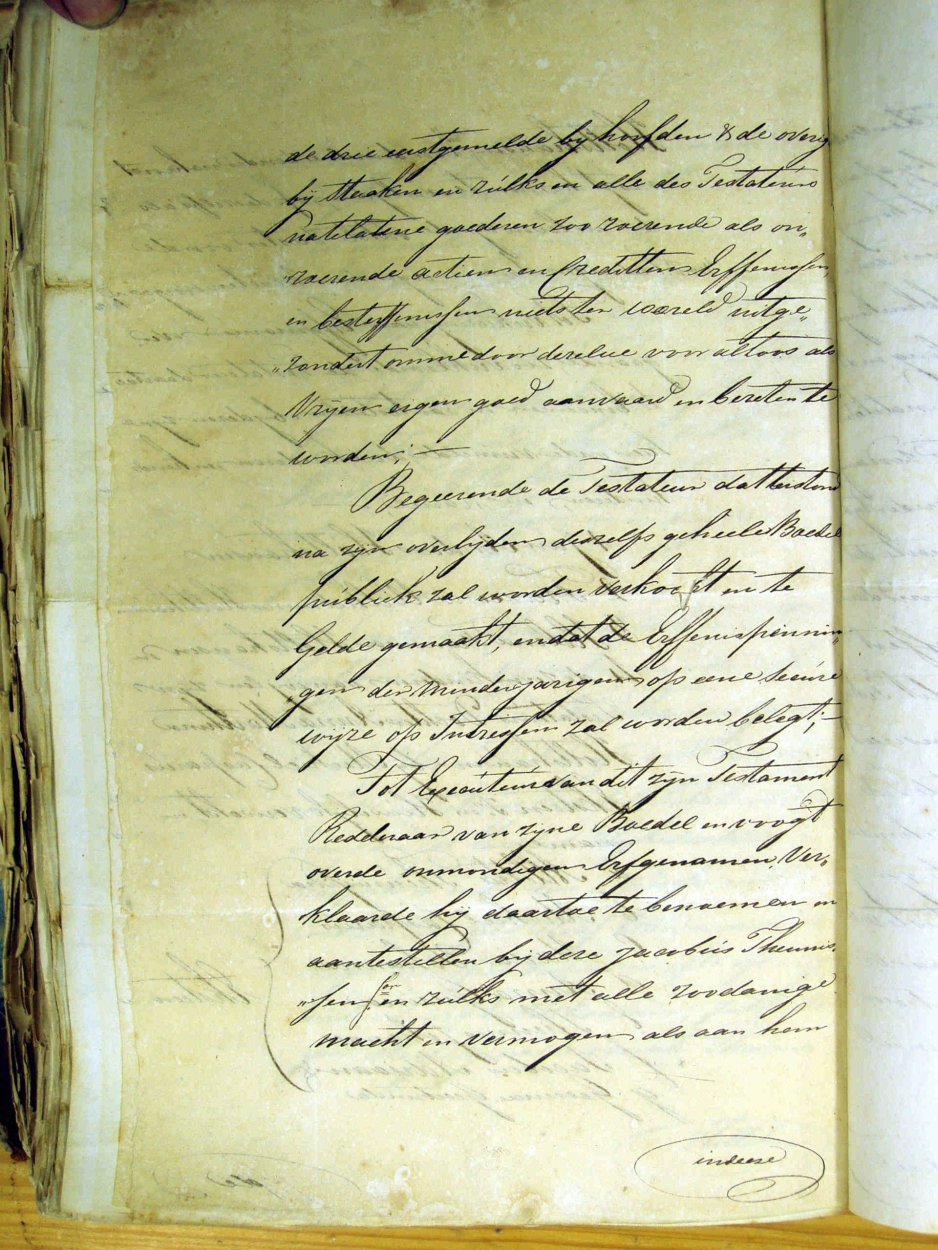 de drie eerstgemelde bij hoofden & de overig
bij Staaken en zulks en alle des Testateurs
natelatene goederen zoo roerende als on„
„roerende actien en Credittens Erffenissen
en besterffenissen niets ter waereld uitge„
„zondert omme door deselve voor altoos als
Vrijen eigen goed aanvaard en bezeten te
worden; —
Begeerende de Testateur dat terstond
na zijn overlijden deszelfs geheele Boedel
publiek zal worden verkogt en te
Gelde gemaakt, en dat de Erffenispennin„
gen der Minderjarigen op eene secure
wyze op Intressen zal worden belegt; —
Tot Executeur van dit zijn Testament
Redderaar van zijne Boedel en voogt
over de onmondigen Erfgenamen Ver„
klaarde hij daartoe te benoemen en
aantestellen bij deze Jacobus Theunis„
„sen Sor en zulks met alle zoodanige
macht en vermogen als aan hem
in deese